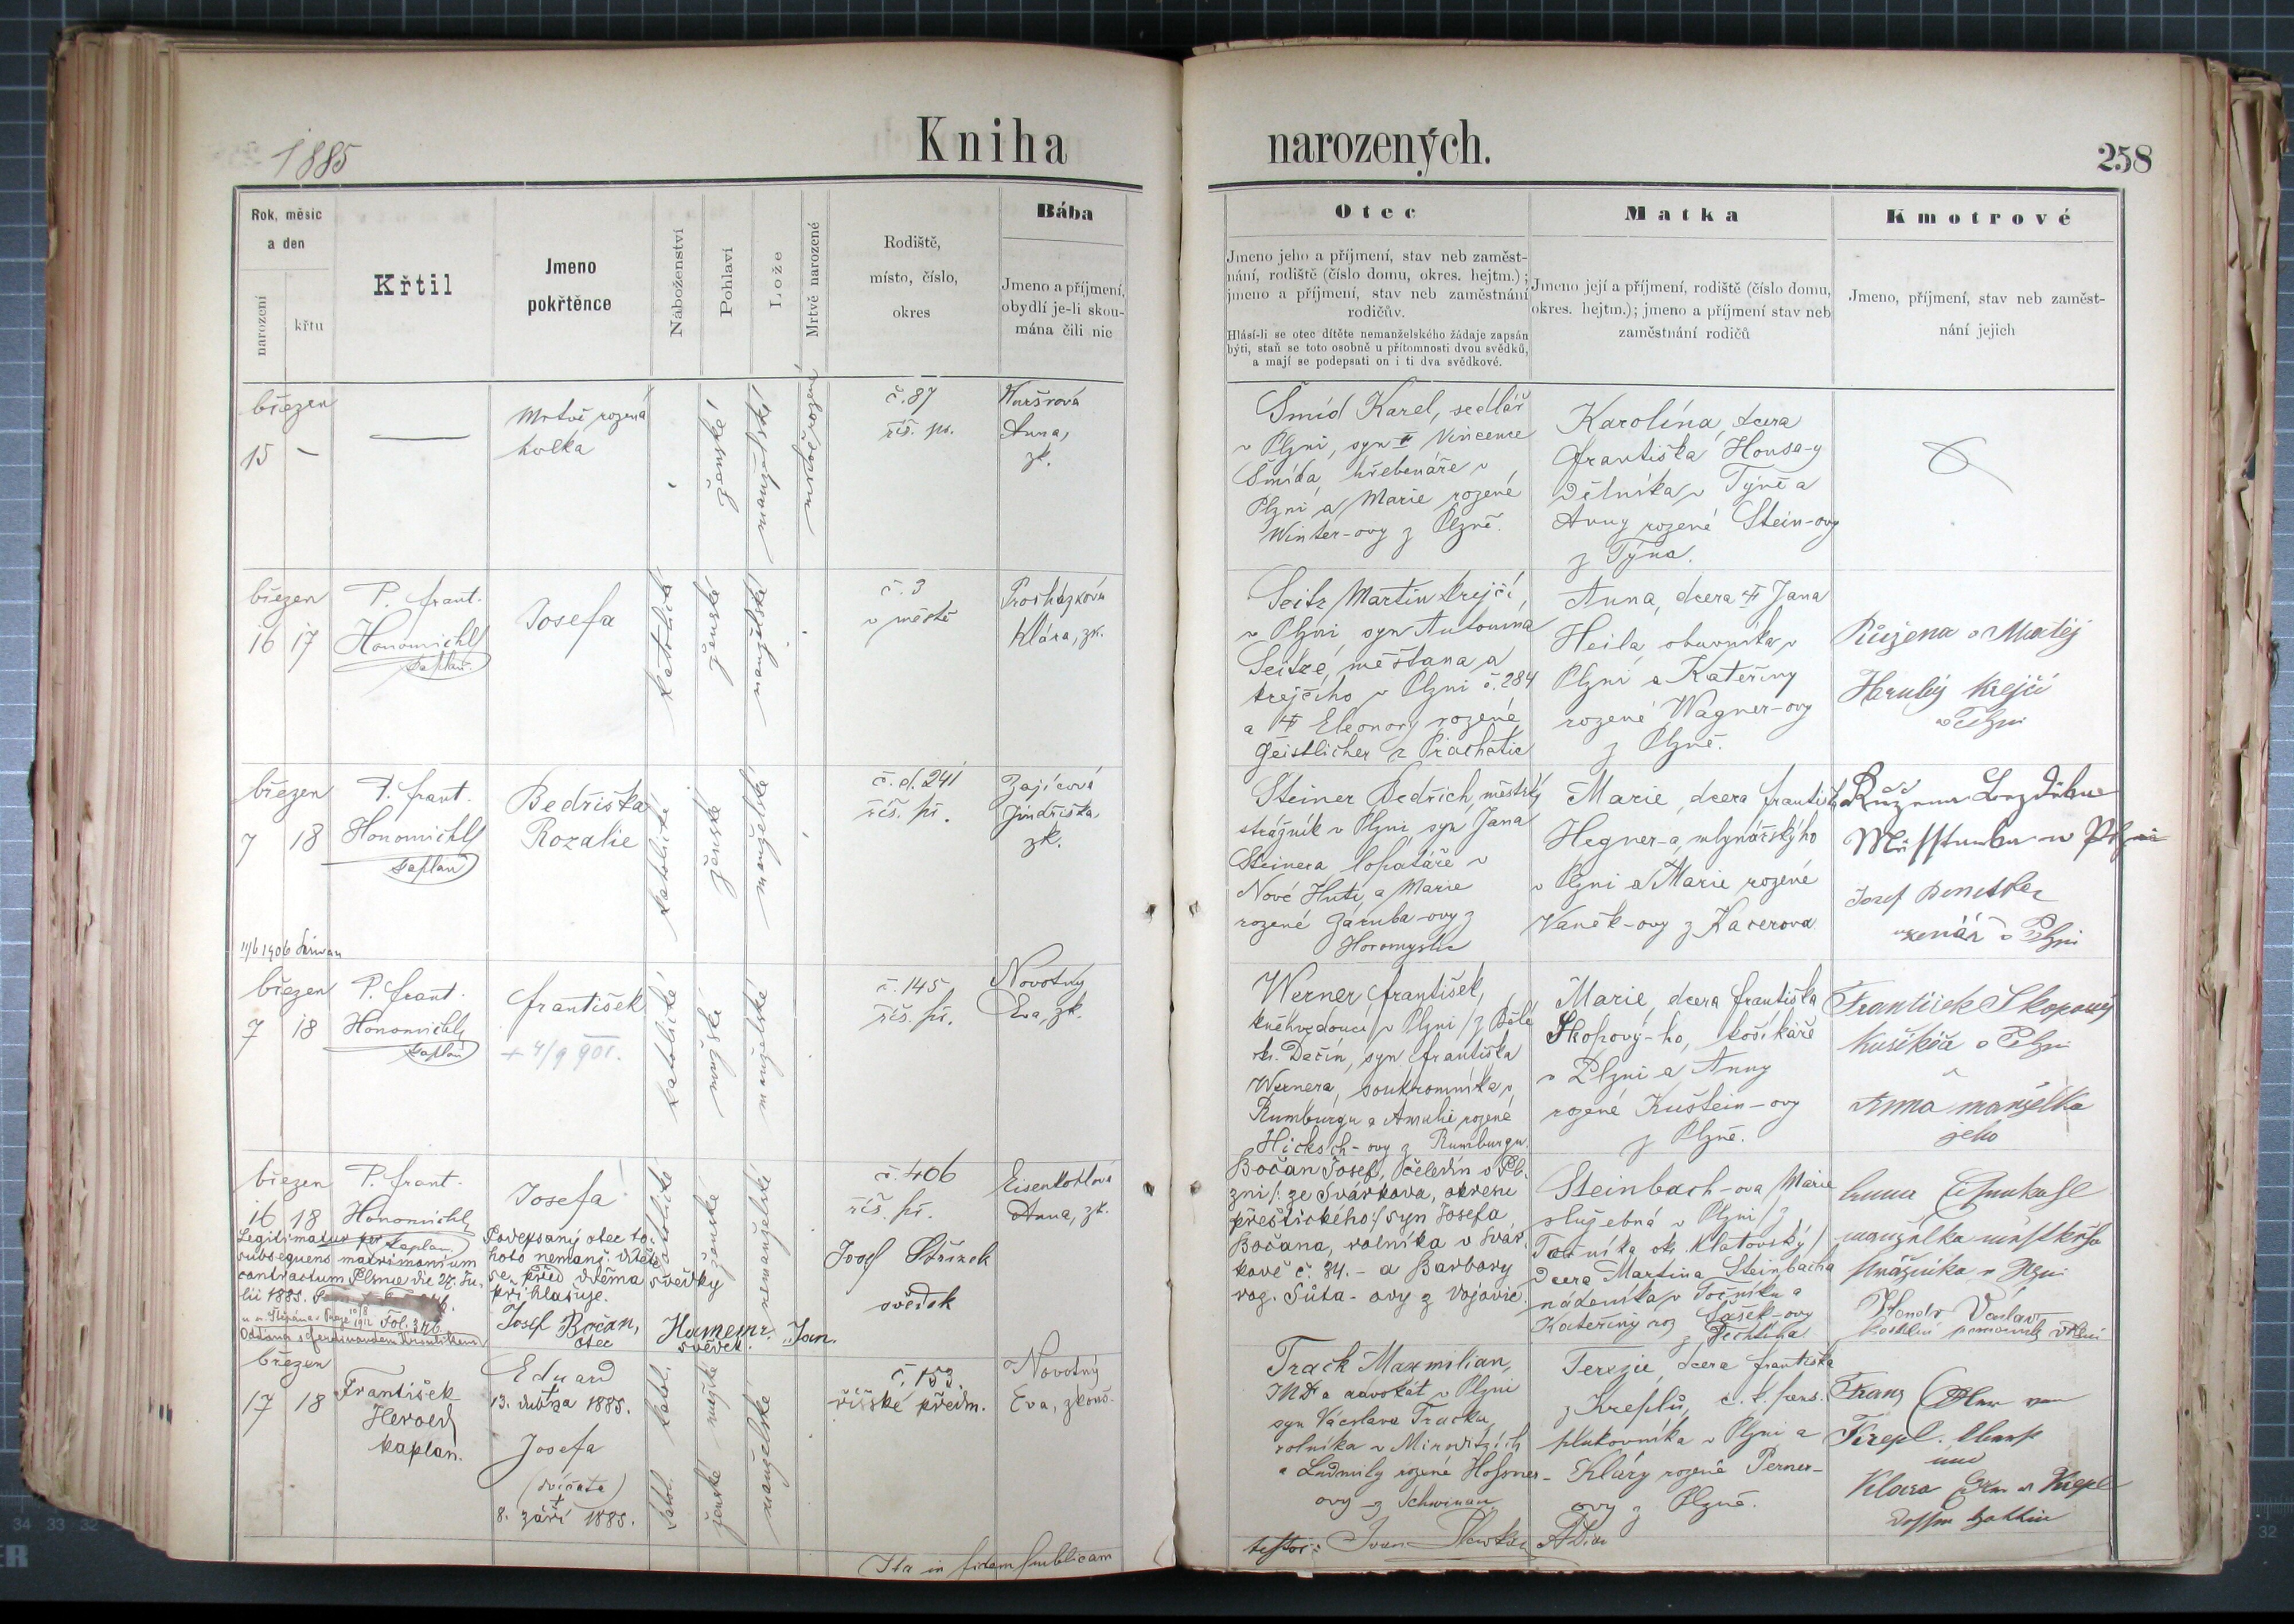 1885
Kniha
narozených.
258
Rok, měsíc
a den
narození
křtu
Křtil
Jmeno
pokřtěnce
Náboženství
Pohlaví
Lože
Mrtvě narozené
Rodiště,
místo, číslo,
okres
Bába
Jmeno a příjmení,
obydlí je-li skou-
mána čili nic
Otec
Jmeno jeho a příjmení, stav neb zaměst-
nání, rodiště (číslo domu, okres. hejtm.);
jmeno a příjmení, stav neb zaměstnání
rodičův.
Hlásí-li se otec dítěte nemanželského žádaje zapsán
býti, staň se toto osobně u přítomnosti dvou svědků,
a mají se podepsati on i ti dva svědkové.
Matka
Jmeno její a příjmení, rodiště (číslo domu,
okres. hejtm.); jmeno a příjmení stav neb
zaměstnání rodičů
Kmotrové
Jmeno, příjmení, stav neb zaměst-
nání jejich
březen
15 -
Mrtvě rozená
holka
ženské
manželské
mrtvě rozená
č. 87
říš. př.
Anna,
zk.
Šmíd Karel, sedlář
v Plzni, syn Vincence
Šmída, hřebenáře v
Plzni a Marie rozené
Winter-ovy z Plzně.
Karolína, dcera
Františka Housa-y
dělníka v Týně a
Anny rozené Stein-ovy
z Týna.
březen
16 17
P. Frant.
Honomichl
kaplan
Josefa
katolické
ženské
manželské
č. 3
v městě
Procházková
Klára, zk.
Seitz Martin krejčí,
v Plzni syn Antonína
Seitze, měšťana a
krejčího v Plzni č. 284
a Eleonory rozené
Geistlicher z Prachatic
Anna, dcera Jana
Heila, obuvníka v
Plzni a Kateřiny
rozené Wagner-ovy
z Plzně.
Růžena a Matěj
Hrubý krejčí
v Plzni
březen
7 18
P. Frant.
Honomichl
kaplan
Bedřiška
Rozalie
katolické
ženské
manželské
č. d. 241
říš. př.
Zajícová
Jindřiška,
zk.
Steiner Bedřich, městský
strážník v Plzni, syn Jana
Steinera lopatáře v
Nové Huti, a Marie
rozené Záruba-ovy z
Horomyslic
Marie, dcera Františka
Hegner-a, mlynářského
v Plzni a Marie rozené
Vaněk-ovy z Kacerova
Josef
v Plzni
11/6 1906
březen
7 18
P. Frant.
Honomichl
kaplan
František
+ 4/9 901.
katolické
mužské
manželské
č. 145
říš. př.
Novotný
Eva, zk.
Werner František,
knihvedoucí v Plzni / z Bělé
ok. Děčín, syn Františka
Wernera, soukromníka v
Rumburgu a Amalie rozené
Hicksch-ovy z Rumburgu.
Marie, dcera Františka
Skopový-ho, košikáře
v Plzni a Anny
rozené Kuštein-ovy
z Plzně.
František Skopový
Košikář v Plzni
Anna manželka
jeho
březen
16 18
P. Frant.
Honomichl
kaplan
Legitimatus per
subsequens matrimonium
contractum Plsnae die 27. Ju-
lii 1885.
Fol. 346
Josefa
Podepsaný otec to-
hoto nemanž. dítěte
se před dvěma svědky
přihlašuje.
Josef Bočan,
otec
katolické
ženské
nemanželské
Jan.
svědek.
č. 406
říš. př.
Josef
svědek
Anna, zk.
Bočan Josef, čeledín v Pl-
zni /: ze Svárkova, okresu
přeštického:/ syn Josefa
Bočana, rolníka v Svár-
kově č. 34. - a Barbory
roz. Šůta-ovy z Vojovic.
Steinbach-ova Marie
služebná v Plzni / z
Točníka ok. Klatovský /
dcera Martina Steinbacha
nádeníka v Točníku a
Kateřiny roz. Sašek-ovy
z Těchtína
Václav
březen
17 18
František
Herold
kaplan.
Eduard
13. dubna 1885.
Josefa
(dvíčata)
8. září 1885.
katol.
mužské
manželské
katol.
ženské
č. 153.
říšské předm.
Novotný
Eva, zkouš.
Track Maxmilian,
JUDr a advokát v Plzni
syn Václava Tracka,
rolníka v Mirovitzích
a Ludmily rozené Hofsner-
ovy z Schwinau
Terezie, dcera Františka
z Kreplů, c. k. pens.
plukovníka v Plzni a
Kláry rozené Perner-
ovy z Plzně.
Franz
und
Klara
Ita in fidem publicam
testor: